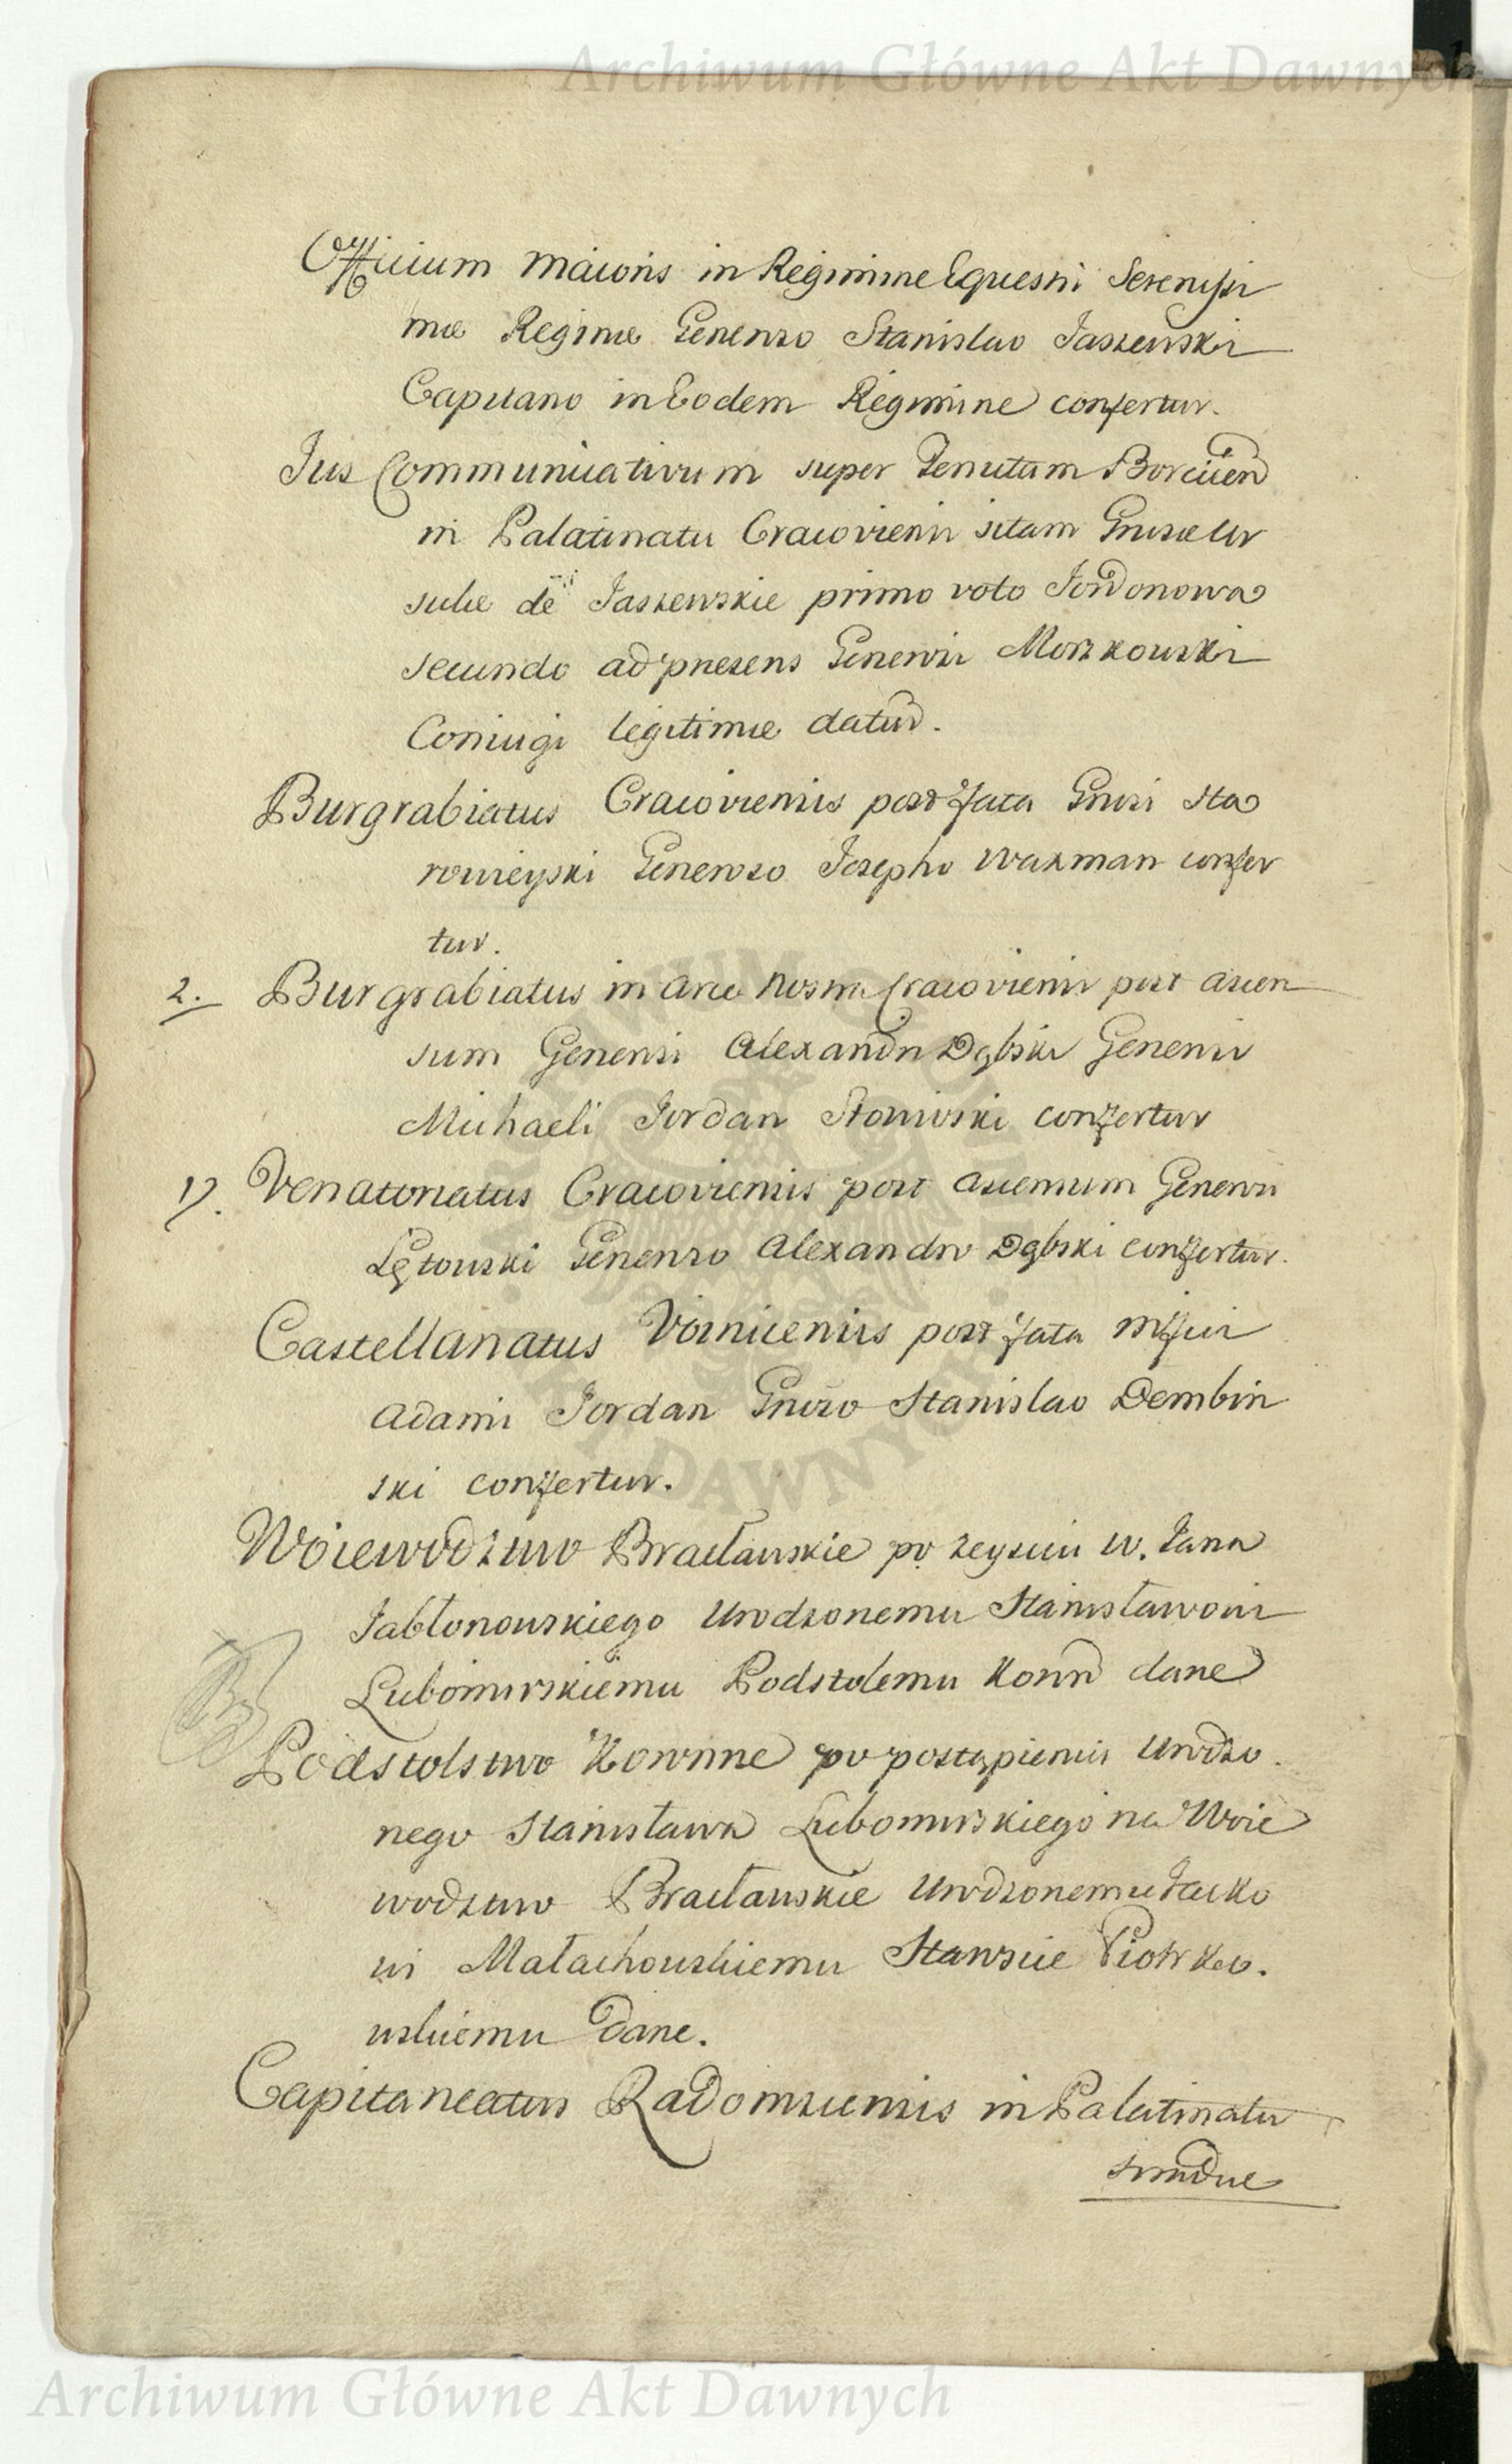 Archiwum Główne Akt Dawnych
Officium Maioris in Regimine Equestri Serenissi
mæ Reginæ Generoso Stanislao Jaszewski
Capitano in Eodem Regimine confertur.
Jus Communicativum super Tenutam Borcien
in Palatinatu Cracoviensi sitam Gnisæ Ur
sulæ de Jaszewskie primo voto Jordonowa
secundo ad præsens Generosi Morzkowski
Coniugi legitimæ datur.
Burgrabiatus Cracoviensis post fata Gnisi Sta
rowieyski Generoso Josepho Waxman confer
tur.
2. Burgrabiatus in Arce Nostra Cracoviensi post ascen
sum Generosi Alexandri Dąbski Generosi
Michaeli Jordan Stoinski confertur
1). Venatoriatus Cracoviensis post ascensum Generosi
Lętowski Generoso Alexandro Dąbski confertur.
Castellanatus Voinicensis post fata Mgfici
Adami Jordan Gniso Stanislao Dembin
ski confertur.
Woiewodztwo Bracławskie po zeyściu W. Jana
Jabłonowskiego Urodzonemu Stanisławowi
Lubomirskiemu Podstolemu Koron dane
Podstolstwo Koronne po postąpieniu Urodzo
nego Stanisława Lubomirskiego na Woie
wodztwo Bracławskie Urodzonemu Jacko
wi Małachowskiemu Staroście Piotrko.
wskiemu dane.
Capitaneatus Radomscensis in Palatinatu
Siradiæ
Archiwum Główne Akt Dawnych